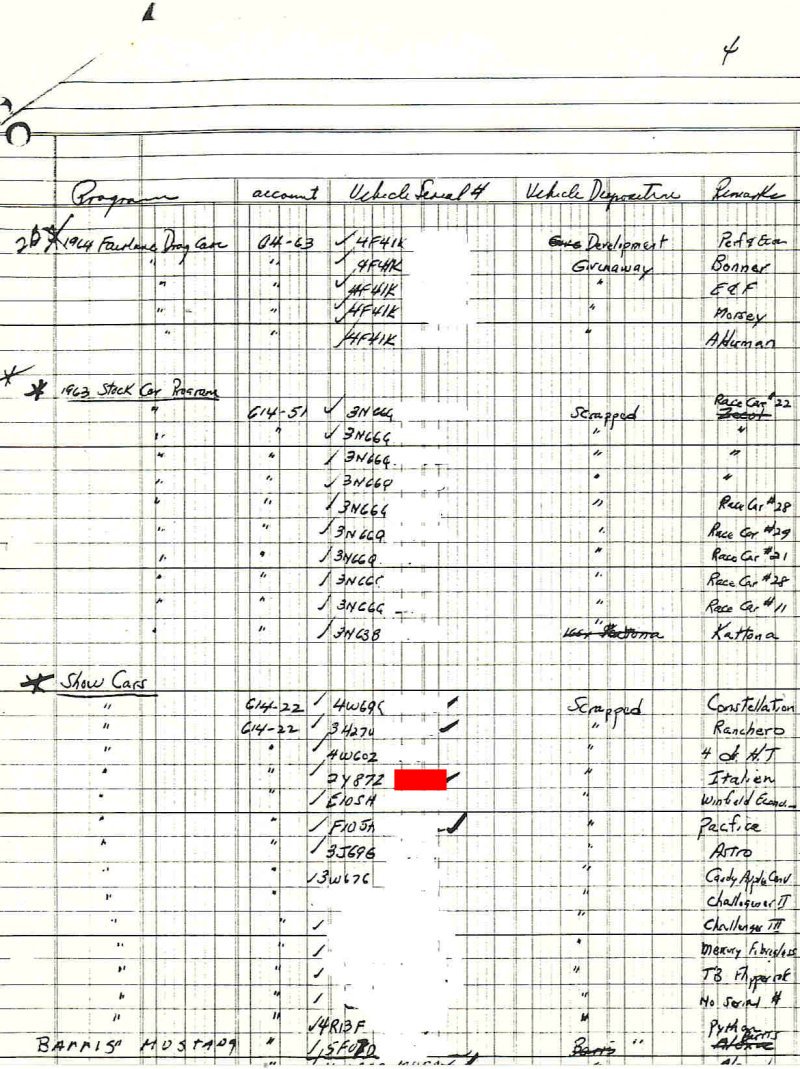 4
Program account Vehicle Serial # Vehicle Disposition Remarks
1964 Fairlane Drag Cars G14-63 ✓ 4F41K Development Perf & Econ
" " 4F41K Giveaway Bonner
" " 4F41K " E & F
" " ✓ 4F41K " Morsey
" " 4F41K " Alderman
* * 1963 Stock Car Program
" G14-51 ✓ 3N66G Scrapped Race Car #22
" " ✓ 3N66G " "
" " ✓ 3N66G " "
" " ✓ 3N66Q " "
" " ✓ 3N66G " Race Car #28
" " ✓ 3N66Q " Race Car #29
" " ✓ 3N66Q " Race Car #21
" " ✓ 3N66 " Race Car #28
" " ✓ 3N66G " Race Car #11
" " ✓ 3N63B Kattona
* Show Cars
" G14-22 ✓ 4W69 ✓ Scrapped Constellation
" G14-22 ✓ 3H27U ✓ " Ranchero
" " ✓ 4W602 " 4 dr. H.T
" " ✓ 2Y87Z ✓ " Italien
" " ✓ E105H " Winfield Econo
" " ✓ F105A ✓ " Pacfica
" " ✓ 3J69G " Astro
" ✓ 3W676 " Candy Apple Conv
" " Challenger II
" " ✓ Challenger III
" " ✓ " Mercury Fibreglass
" " ✓ " TB
" " ✓ " No Serial #
" " ✓ 4R13F Python
BARRIS MUSTANG " ✓ 5F0 " Barris